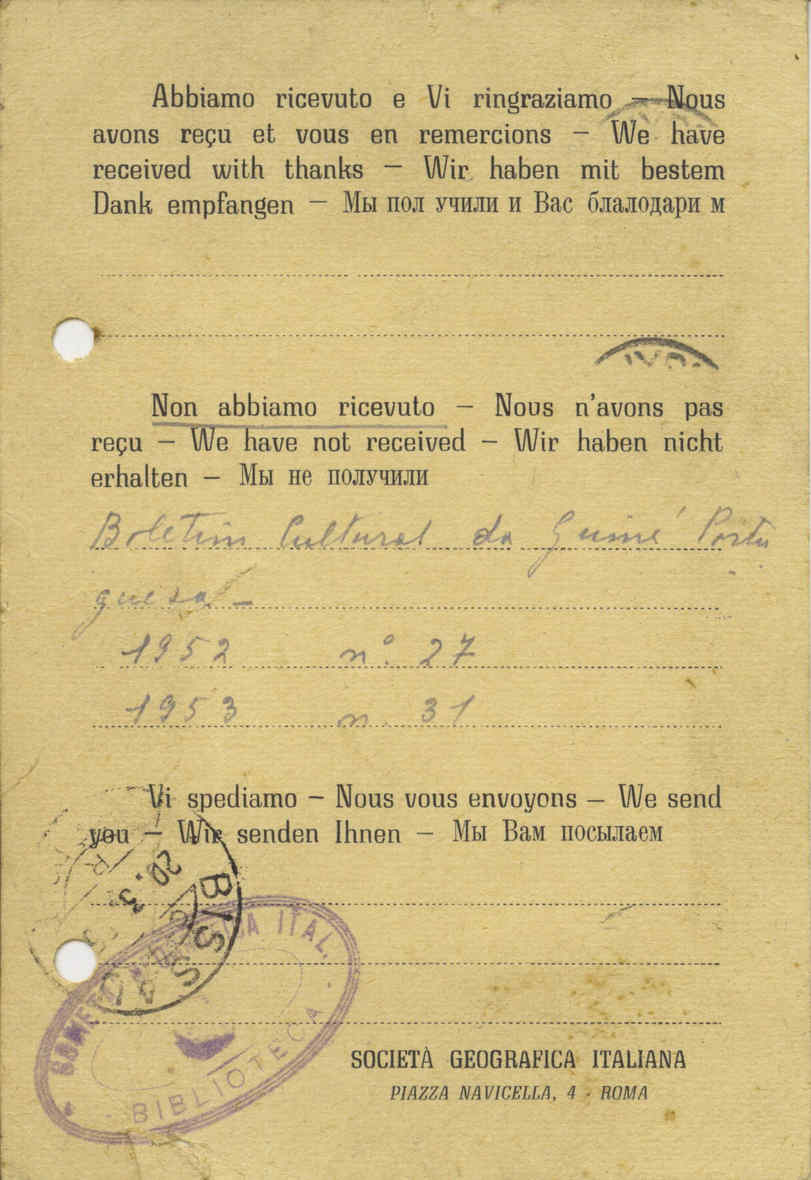 Abbiamo ricevuto e Vi ringraziamo — Nous
avons reçu et vous en remercions — We have
received with thanks — Wir haben mit bestem
Dank empfangen — Мы пол учили и Вас блалодари м
Non abbiamo ricevuto — Nous n'avons pas
reçu — We have not received — Wir haben nicht
erhalten — Мы не получили
Boletim Cultural da Guiné Portu
guesa —
1952 n.º 27
1953 n. 31
Vi spediamo — Nous vous envoyons — We send
you — Wir senden Ihnen — Мы Вам посылаем
20. 3
BISSAU
ITAL.
BIBLIOTECA
SOCIETÀ GEOGRAFICA ITALIANA
PIAZZA NAVICELLA, 4 - ROMA